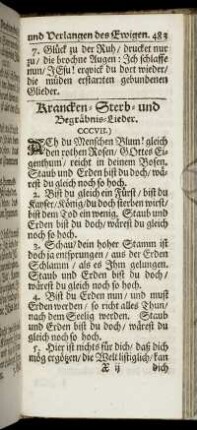 und Verlangen des Ewigen. 483
7. Glück zu der Ruh/ drucket nur
zu/ die brochne Augen: Ich schlaffe
nun/ JEsu! erqvick du dort wieder/
die müden erstarrten gebundenen
Glieder.
Krancken- Sterb- und
Begräbnis-Lieder.
CCCVII.)
ACh du Menschen Blum! gleich
den rothen Rosen/ GOttes Ei-
genthum/ reicht in deinem Bosen.
Staub und Erden bist du doch/ wä-
rest du gleich noch so hoch.
2. Bist du gleich ein Fürst/ bist du
Kayser/König/du doch sterben wirst/
bist dem Tod ein wenig. Staub und
Erden bist du doch/ wärest du gleich
noch so hoch.
3. Schau/ dein hoher Stamm ist
doch ja entsprungen/ aus der Erden
Schlamm/ als es Ihm gelungen.
Staub und Erden bist du doch/
wärest du gleich noch so hoch.
4. Bist du Erden nun/ und must
Erden werden/ so richt alles Thun/
nach dem Seelig werden. Staub
und Erden bist du doch/ wärest du
gleich noch so hoch.
5. Hier ist nichts für dich/ daß dich
mög ergötzen/ die Welt listiglich/kan
X ij dich